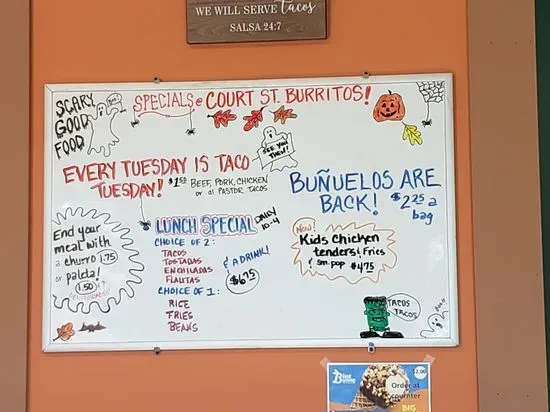 WE WILL SERVE tacos
SALSA 24:7
SCARY
GOOD
FOOD
BOO!
SPECIALS @ COURT ST. BURRITOS!
SEE YOU THEN!
EVERY TUESDAY IS TACO
TUESDAY! $1.50 BEEF, PORK, CHICKEN
or al PASTOR TACOS
BUÑUELOS ARE
BACK! $2.25 a
bag
End your
meal with
a churro 1.75
or paleta!
1.50
LUNCH SPECIAL DAILY
10-4
CHOICE OF 2:
TACOS
TOSTADAS
ENCHILADAS
FLAUTAS
& A DRINK!
$6.75
CHOICE OF 1:
RICE
FRIES
BEANS
New!
Kids chicken
tenders & fries
& sm. pop $4.75
TACOS
TACOS
Blue
Bunny
$2.00
Order at
counter
BIG